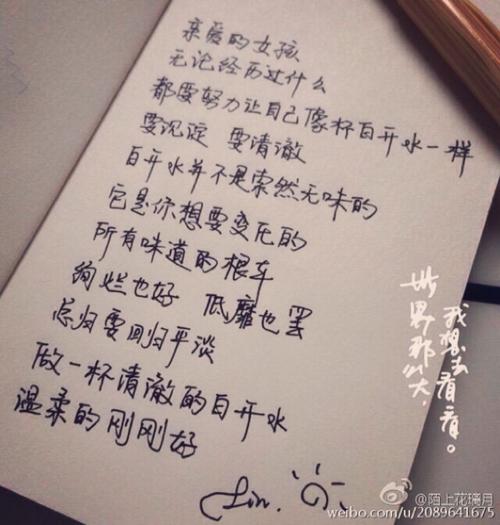 亲爱的女孩
无论经历过什么
都要努力让自己像杯白开水一样
要沉淀 要清澈
白开水并不是索然无味的
它是你想要变化的
所有味道的根本
绚烂也好 低靡也罢
总归要回归平淡
做一杯清澈的白开水
温柔的刚刚好
Lin.
世界那么大,
我想去看看。
@陌上花漪月
weibo.com/u/2089641675